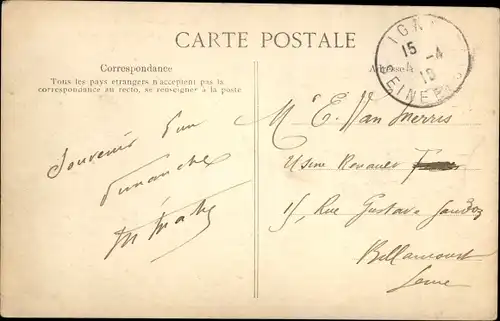 CARTE POSTALE
Correspondance
Tous les pays étrangers n'acceptent pas la
correspondance au recto, se renseigner à la poste
Adresse
IGN
15 -4
10
SEINE
Souvenir d'un
Dimanche
Mr E. Van Merris
Usine Renault
15, Rue Gustave Sandoz
Billancourt
Seine